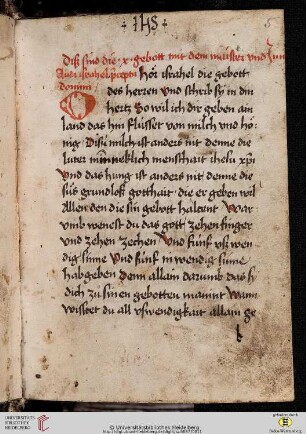 + IHS +
5
Diß sind die x gebott mit dem maister vnd Jun
Audi israhel p̄cepta hör israhel die gebott
domini des herren vnd schrib sÿ in din
hertz So wil ich dir geben ain
land das hin flüsset von milch vnd hö-
nig Disü milch ist anders nit denne die
luter minneklich menschait ihesu xpi
Vnd das hung ist anders nit denne die
süß grundloß gotthait die er geben wil
Allen den die sin gebott haltent War
umb wenest du das gott zehen finger
vnd zehen zechen Vnd fünf vsswen
dig sinne Vnd fünf inwendig sinne
hab geben Denn allain darumb das h
dich zu sinen gebotten mannt Wann
wisstet du all vswendigkait allain ge
© Universitätsbibliothek Heidelberg
UNIVERSITÄTS-
BIBLIOTHEK
HEIDELBERG
gefördert durch